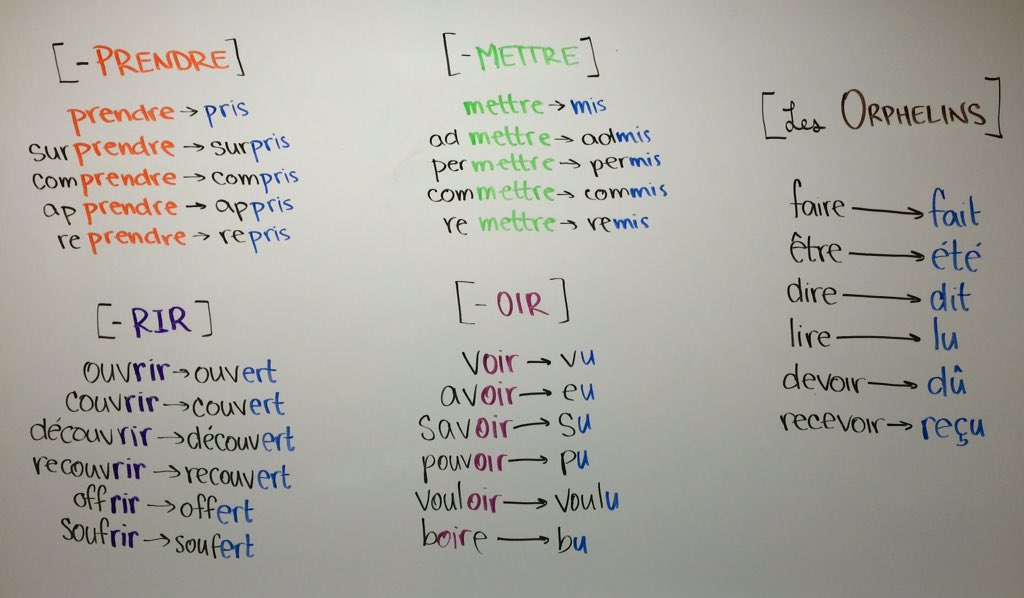 [-PRENDRE]
prendre → pris
surprendre → surpris
comprendre → compris
apprendre → appris
reprendre → repris
[-METTRE]
mettre → mis
admettre → admis
permettre → permis
commettre → commis
remettre → remis
[-RIR]
ouvrir → ouvert
couvrir → couvert
découvrir → découvert
recouvrir → recouvert
offrir → offert
soufrir → soufert
[-OIR]
voir → vu
avoir → eu
savoir → su
pouvoir → pu
vouloir → voulu
boire → bu
[Les ORPHELINS]
faire → fait
être → été
dire → dit
lire → lu
devoir → dû
recevoir → reçu